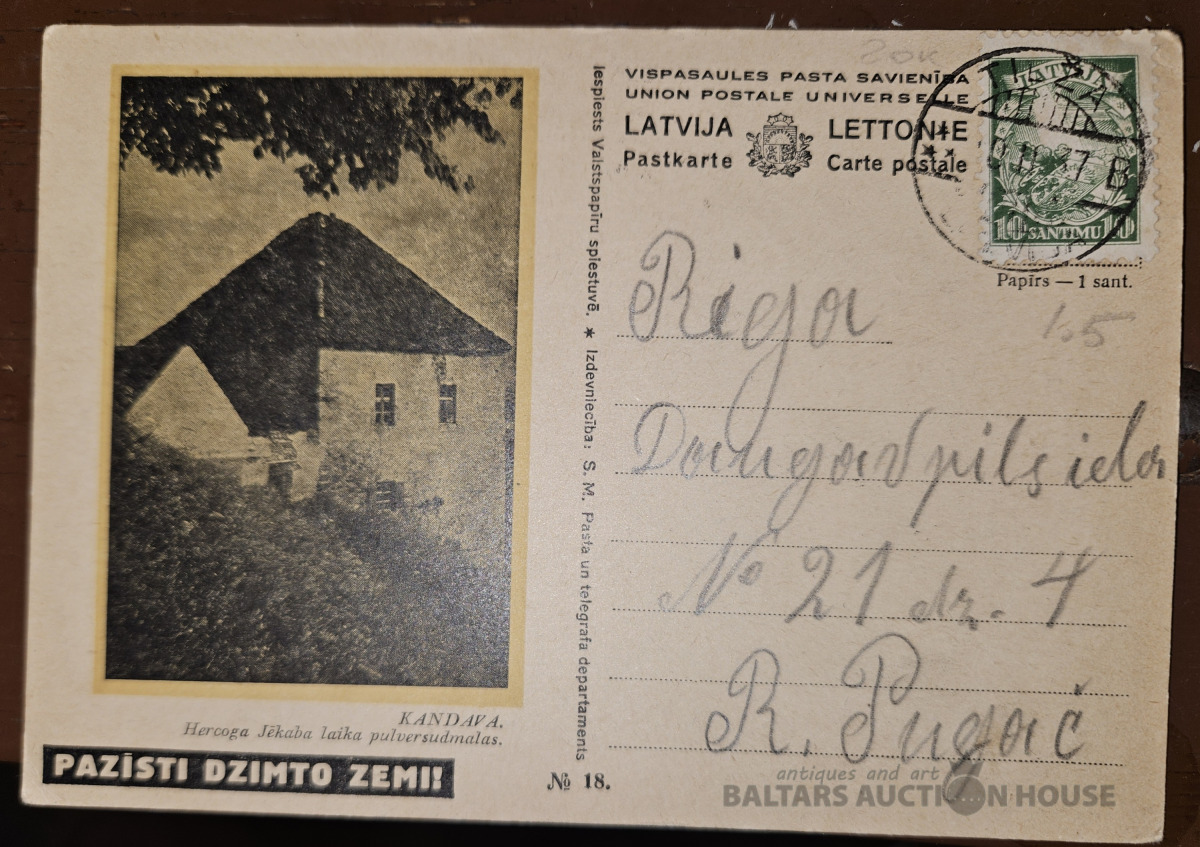 KANDAVA.
Hercoga Jēkaba laika pulversudmalas.
PAZĪSTI DZIMTO ZEMI!
Iespiests Valstspapīru spiestuvē. * Izdevniecība: S. M. Pasta un telegrafa departaments
№ 18.
VISPASAULES PASTA SAVIENĪBA
UNION POSTALE UNIVERSELLE
LATVIJA LETTONIE
Pastkarte Carte postale
LATVIJA
10 SANTIMU 10
37 B
Papīrs — 1 sant.
Riga
Daugavpils iela
№ 21 dz. 4
R. Pugač
antiques and art
BALTARS AUCTION HOUSE